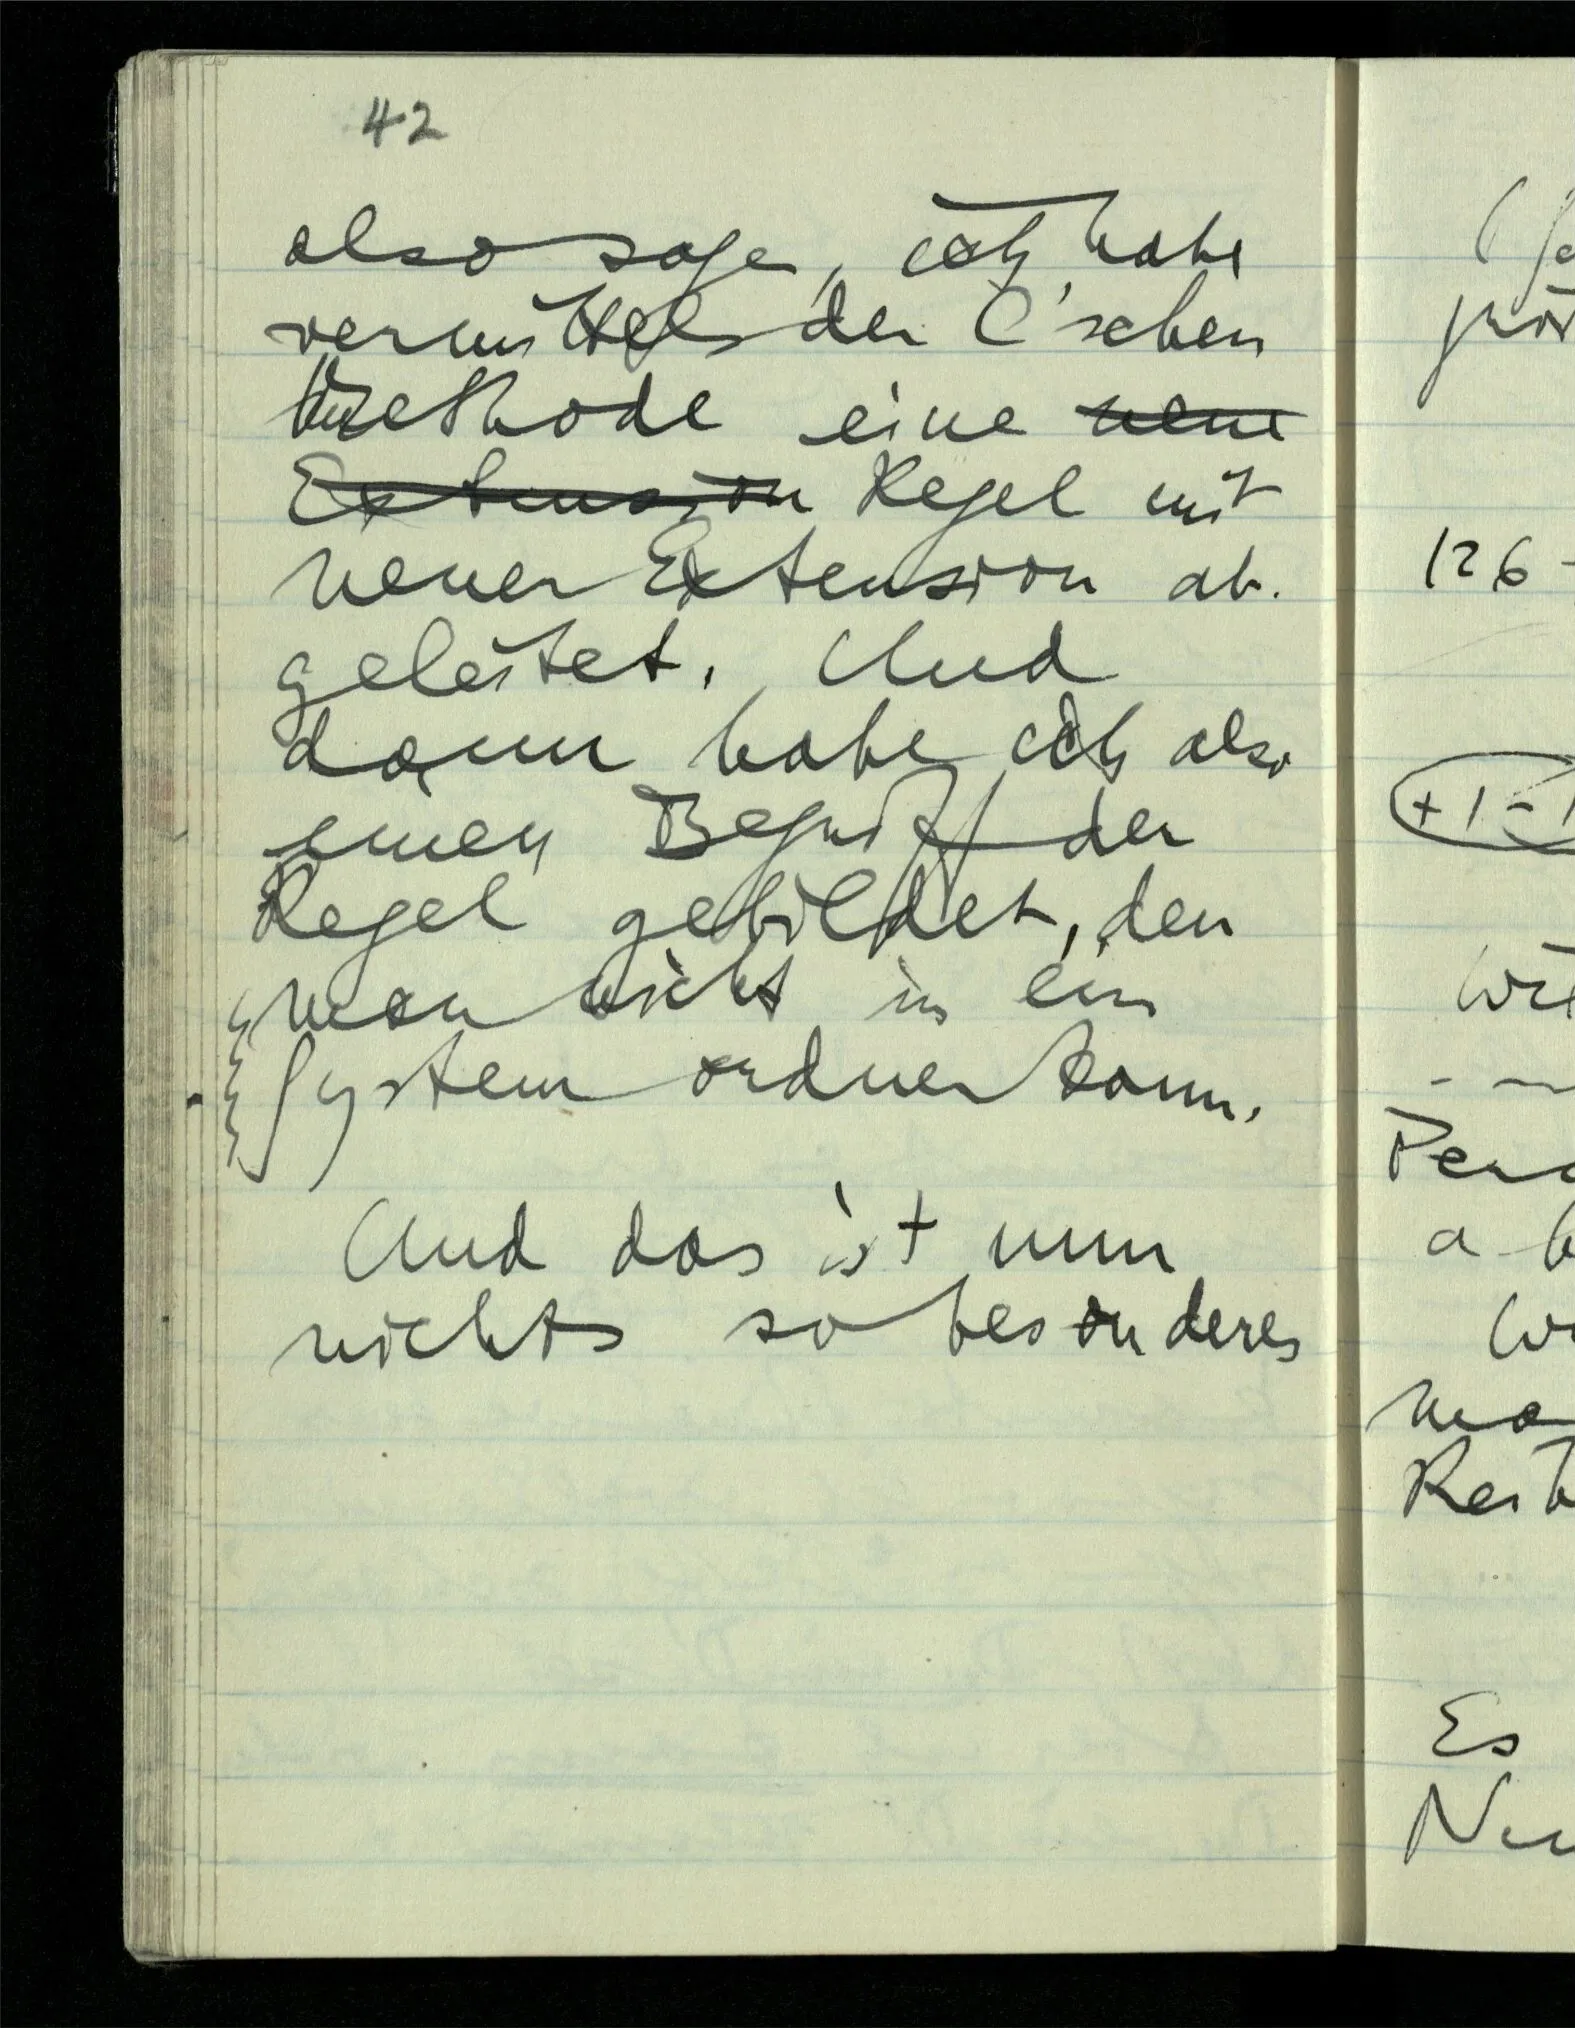 42
also sage, ich habe
vermittels der C'schen
Methode eine neue
Extension Regel mit
neuer Extension ab-
geleitet. Und
dann habe ich also
einen Begriff der
Regel gebildet, den
man nicht in ein
System ordnen kann.
Und das ist nun
nichts so besonderes
126 -
+1-1
Wit
a b
Es